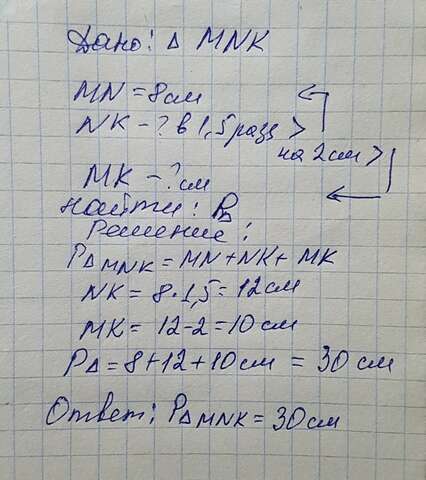 Дано: Δ MNK
MN = 8см
NK - ? в 1,5 раза >
на 2 см >
MK - ? см
Найти: PΔ
Решение:
PΔMNK = MN + NK + MK
NK = 8 · 1,5 = 12 см
MK = 12 - 2 = 10 см
PΔ = 8 + 12 + 10 см = 30 см
Ответ: PΔMNK = 30 см